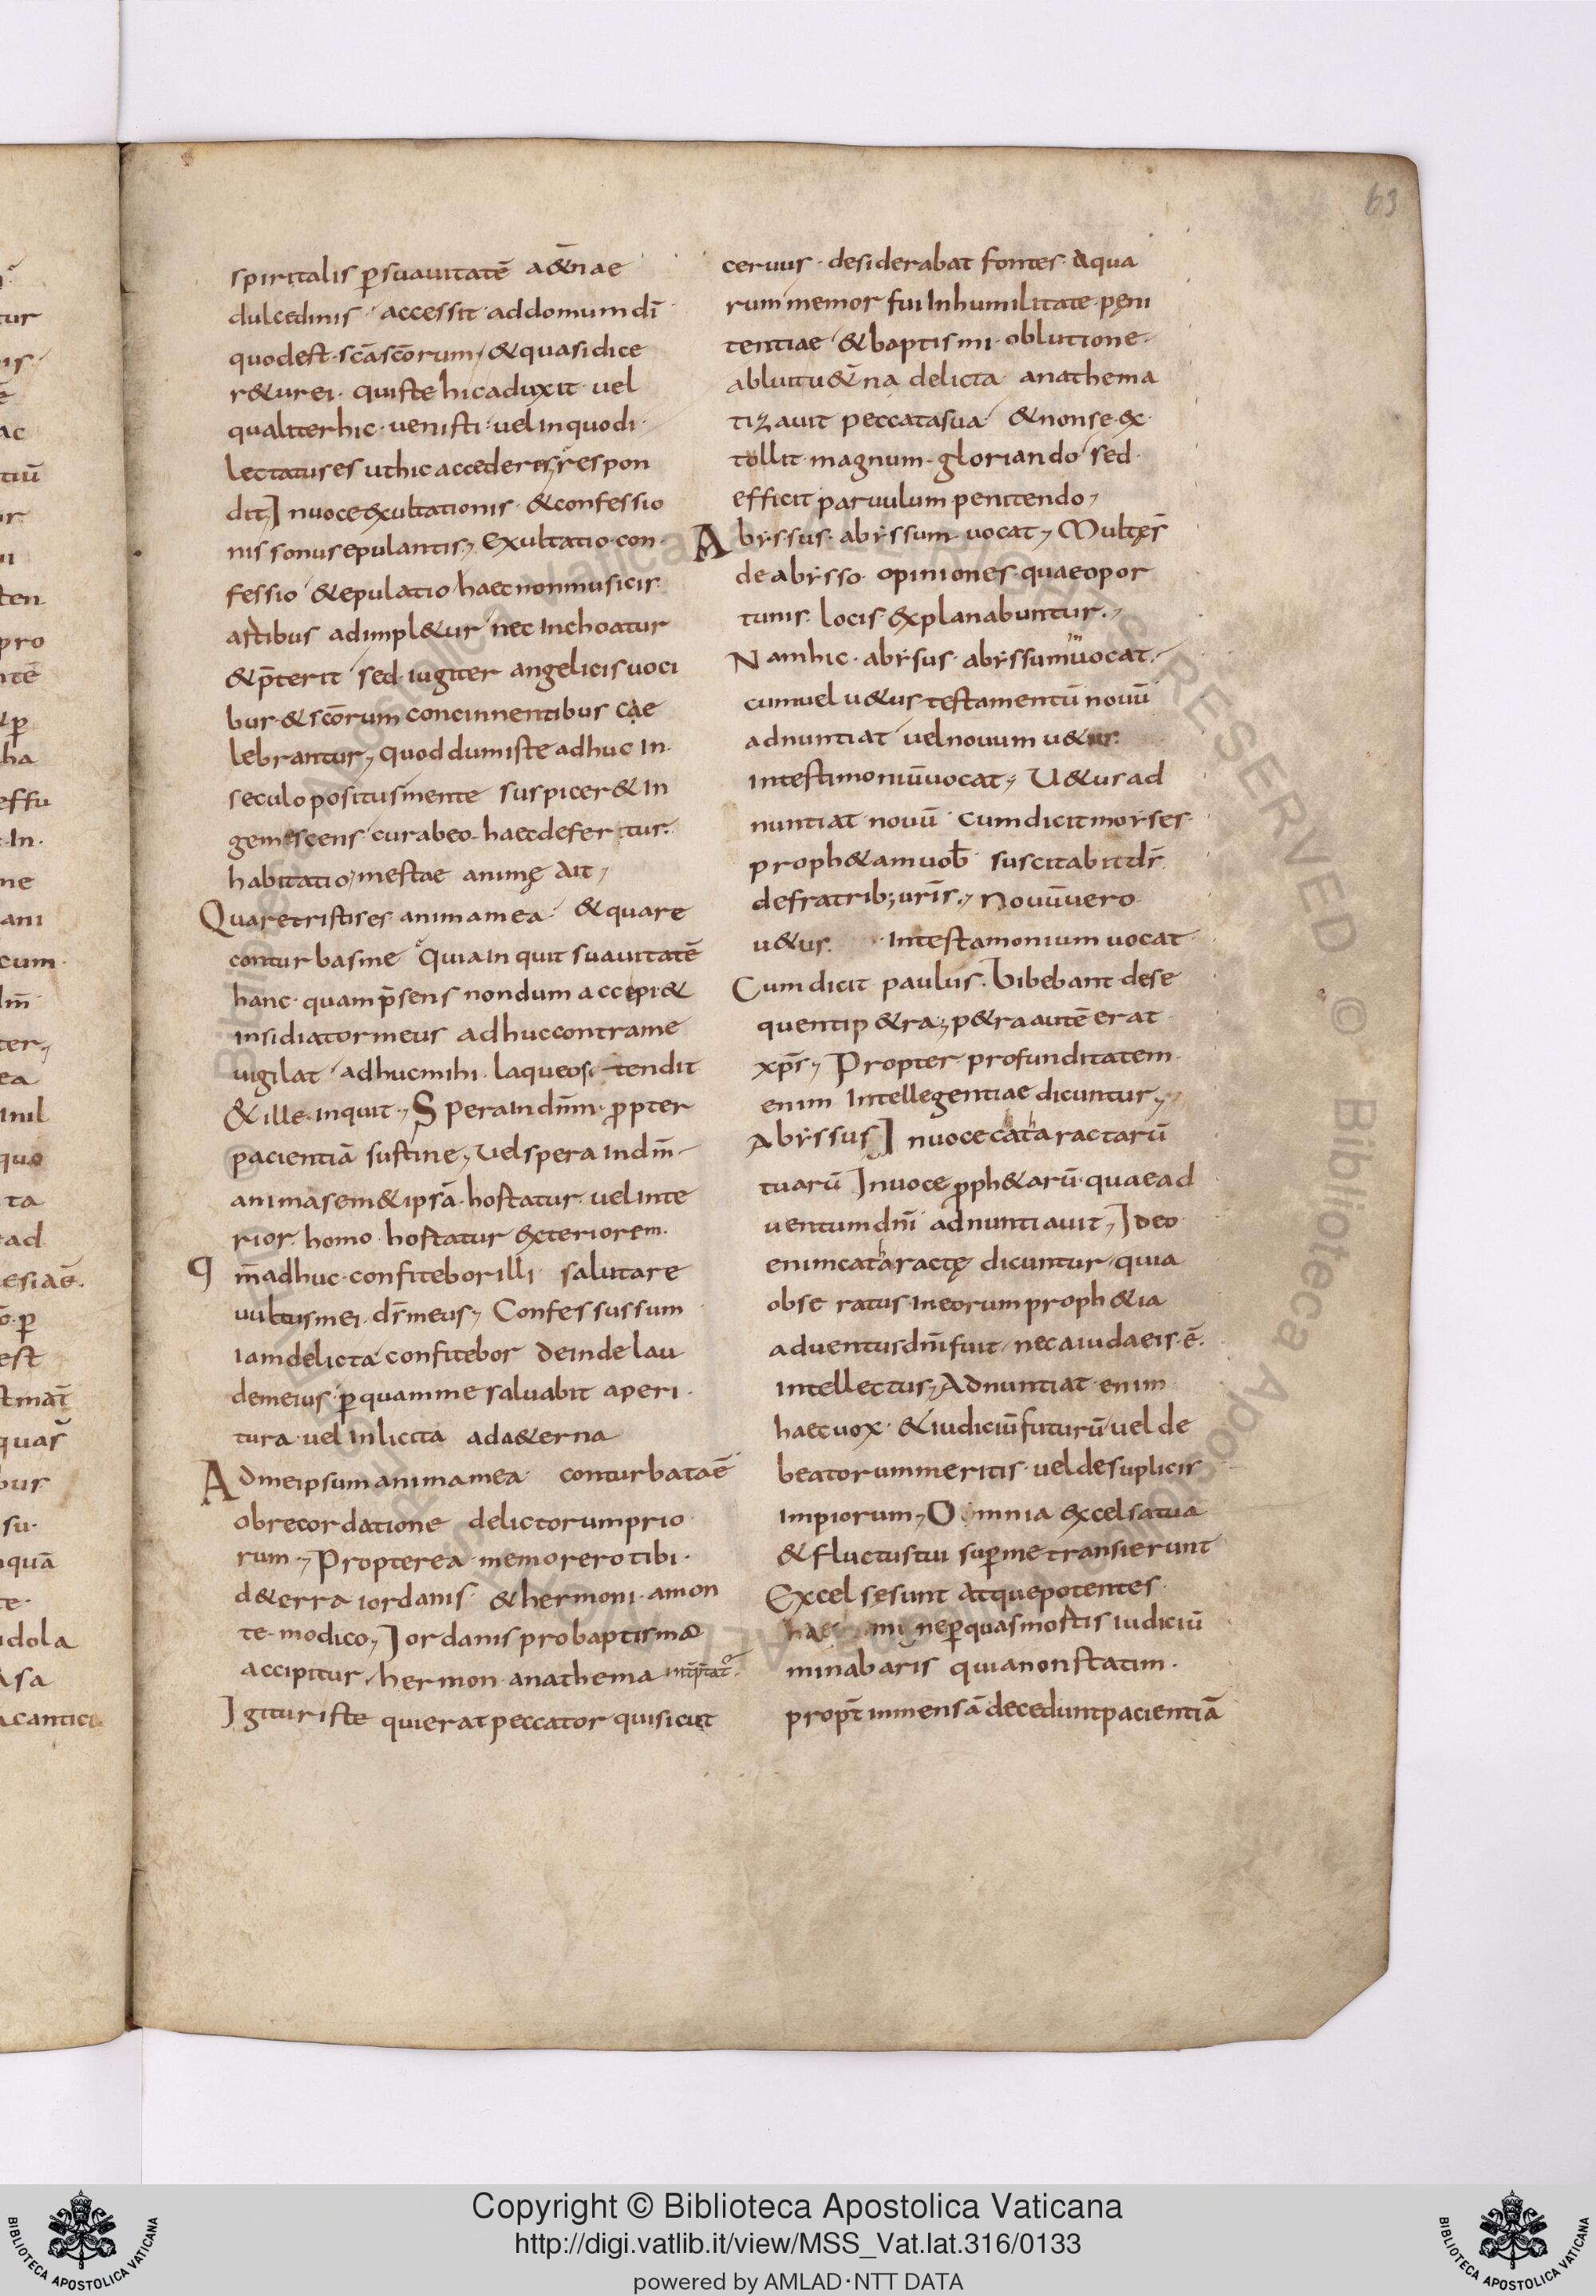 63
spiritalis ꝑsuauitatē a&̄nae
dulcedinis · accessit · addomum dī
quodest · scāscōrum, &quasidice
r&urei · quiste hicaduxit · uel
qualiterhic · uenisti · uelinquodi
lectatuses uthicaccederes, respon
dit, Inuoceexultationis · &confessio
nis sonusepulantis, Exultatio · con
fessio &epulatio haecnonmusicis
artibus adimpl&ur nec inchoatur
&p̄terit sed · iugiter angelicisuoci
bus · &scōrum concinnentibus cae
lebrantur, quoddumiste adhuc in
seculopositusmente suspicer& in
gemescens curabeo · haecdefertur
habitatio, mestae animę ait,
Quaretristises animamea · &quare
conturbasme quiainquit suauitatē
hanc · quamp̄sens nondum accipi&
insidiatormeus adhuccontrame
uigilat adhucmihi · laqueos · tendit
& ille · inquit, Speraindnm̄ · ꝓpter
pacientiā sustine, uelspera indm̄
animasem&ipsā · hostatur · uelinte
rior · homo · hostatur exteriorem ·
qm̄adhuc · confiteborilli · salutare
uultusmei · dsmeus, Confessussum
iamdelicta confitebor deindelau
demeius · ꝑquammesaluabit aperi
tura · uel inlicita ada&erna
Admeipsumanimamea · conturbataē
obrecordatione delictorumprio
rum, Propterea · memorerotibi ·
d&erra iordanis · &hermoni · amon
te · modico, Iordanis probaptisma
accipitur, hermon · anathema
Igituriste quieratpeccator quisicut
ceruus · desiderabat fontes · aqua
rum memor fui inhumilitate · pęni
tentiae &baptismi · oblutione
abluitu&̄na delicta anathema
tizauit peccatasua &nonse · ex
tollit · magnum · gloriando sed
efficit paruulum penitendo,
Abyssus · abyssum uocat, Multęs̄
deabysso · opiniones · quaeopor
tunis · locis explanabuntur,
Namhic · abysus · abyssum uocat
cumuel u&us testamentū nouū
adnuntiat uelnouum u&us
intestimoniūuocat, U&usad
nuntiat nouū cumdicitmoyses
proph&amuob̄ suscitabitds̄
defratrib; uris̄, Nouūuero
u&us · intestamonium uocat
Cumdicit paulus · bibebant dese
quentip&ra, p&raautē erat
xps̄, Propter profunditatem
enim intellegentiae dicuntur,
Abyssus Inuocecataractarū
tuarū Inuoce ꝓph&arū · quaead
uentumdni adnuntiauit, Ideo
enimcataractę dicuntur quia
obseratus ineorumproph&ia
aduentusdnifuit nec aiudaeis · ē ·
intellectus, Adnuntiat enim
haecuox · &iudiciūfuturū uel de
beatorummeritis · ueldesuplicis
impiorum, Omnia excelsatua
& fluctustui suꝑmetransierunt
Excelsęsunt atquepotentes
ꝑquasnostis iudiciū
minabaris quianonstatim ·
propt̄ immensā deceduntpacientiā
Copyright © Biblioteca Apostolica Vaticana
http://digi.vatlib.it/view/MSS_Vat.lat.316/0133
powered by AMLAD·NTT DATA
BIBLIOTECA APOSTOLICA VATICANA
BIBLIOTECA APOSTOLICA VATICANA